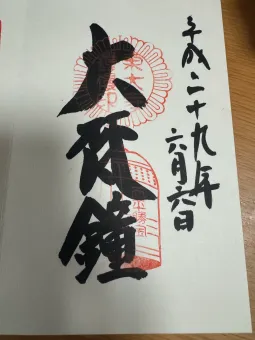 平成二十九年
六月六日
大梵鐘